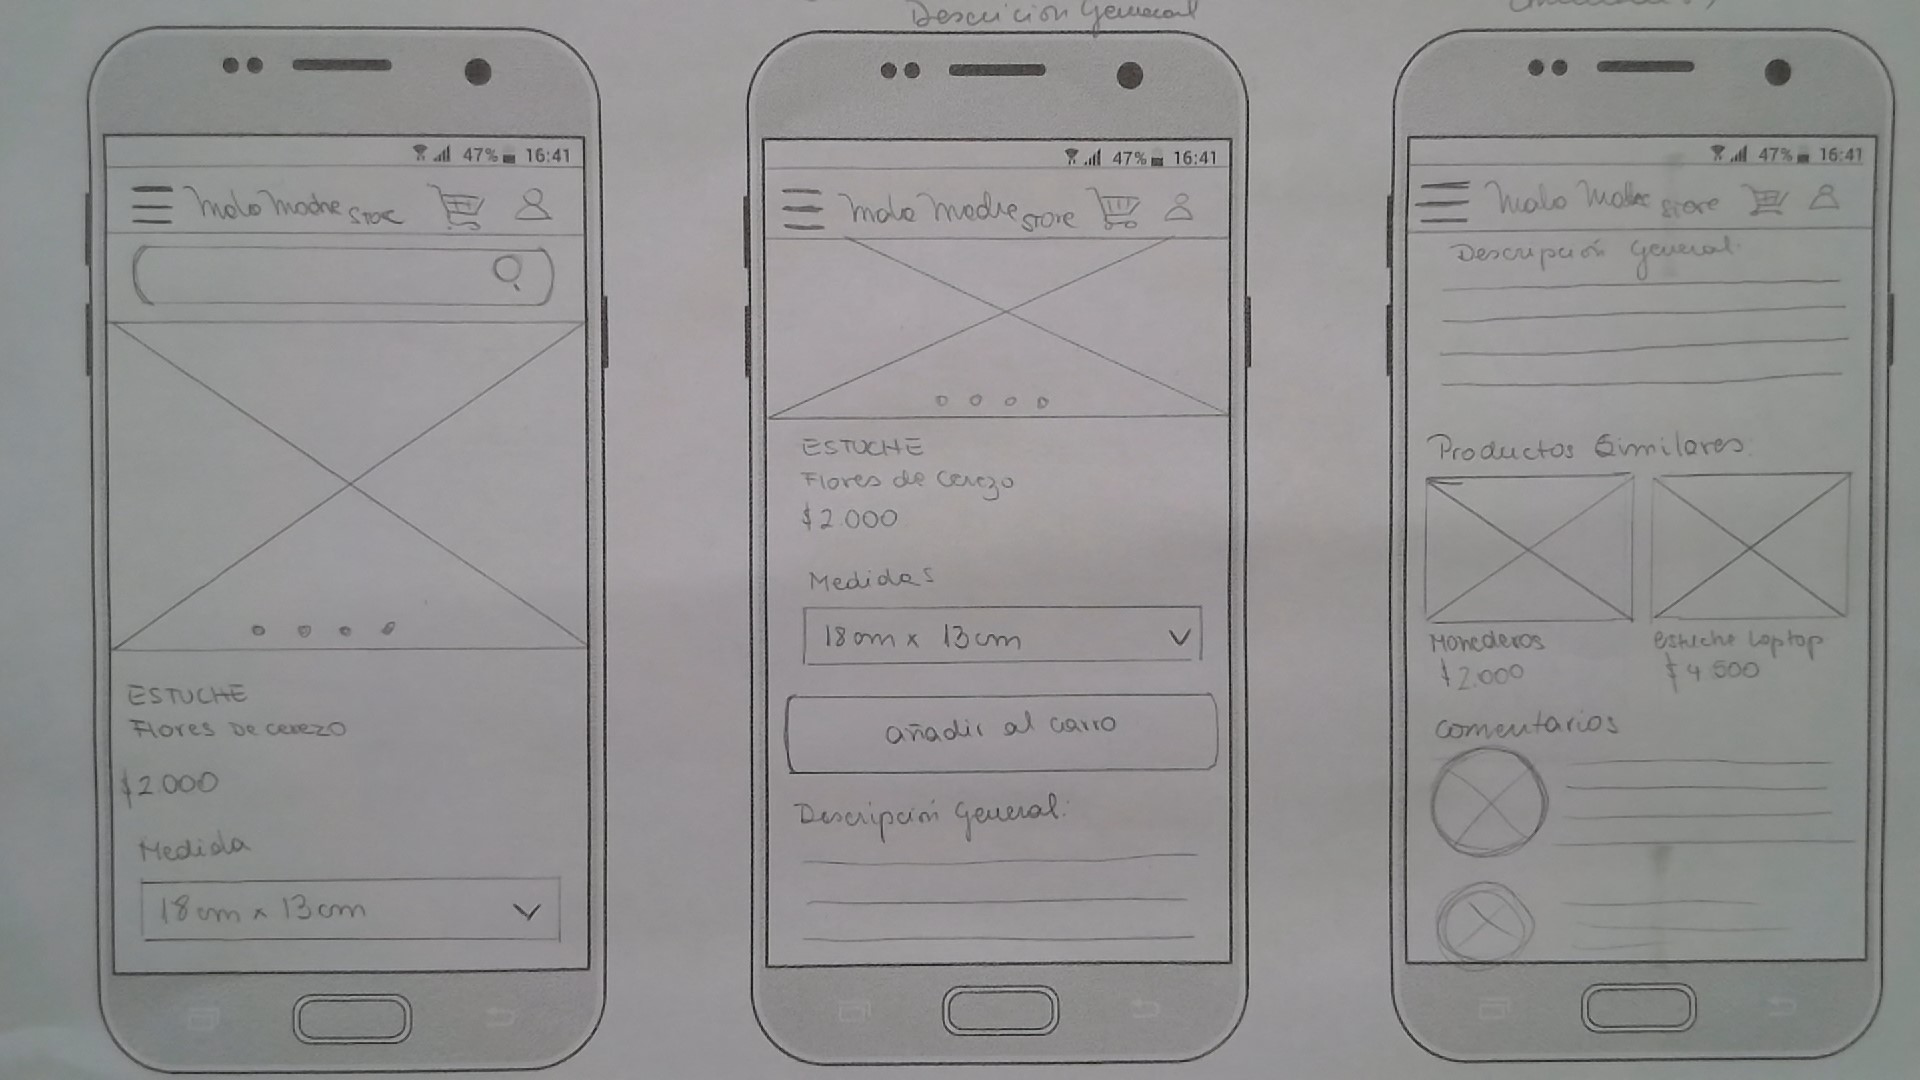 Descrición General
47% 16:41
Malo Madre STORE
ESTUCHE
Flores De cerezo
$2.000
Medida
18cm x 13cm
47% 16:41
Malo Madre STORE
ESTUCHE
Flores de cerezo
$2.000
Medidas
18cm x 13cm
añadir al carro
Descripción General:
47% 16:41
Malo Madre store
Descripción General:
Productos Similares
Monederos
$2.000
estuche laptop
$4.500
comentarios